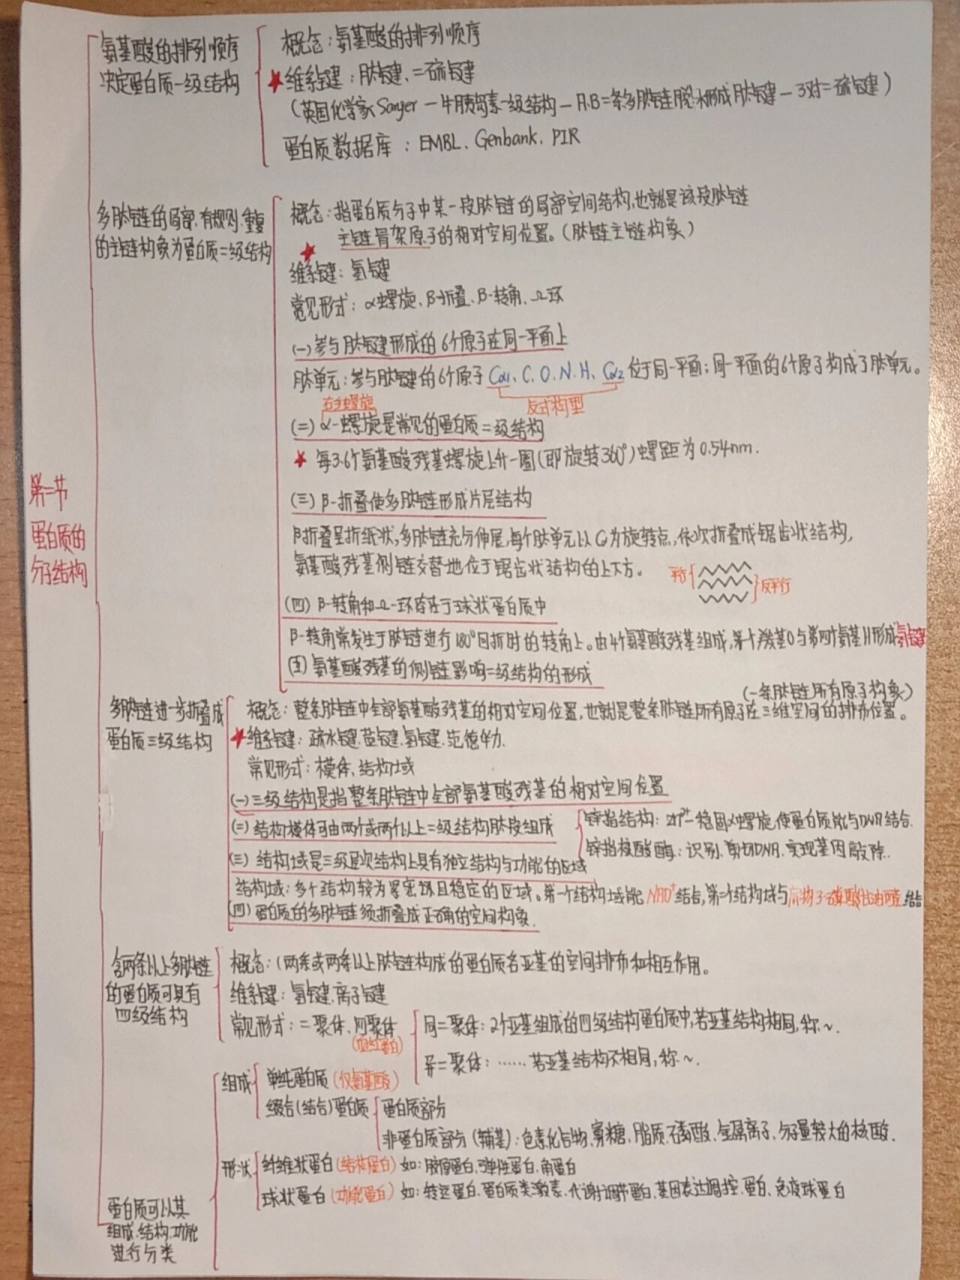 第二节
蛋白质的
分子结构
氨基酸的排列顺序
决定蛋白质一级结构
概念：氨基酸的排列顺序
★维系键：肽键、二硫键
(英国化学家Sanger－牛胰岛素一级结构－A.B二条多肽链脱水形成肽键－3对二硫键)
蛋白质数据库：EMBL、Genbank、PIR
多肽链的局部、有规则、重复
的主链构象为蛋白质二级结构
概念：指蛋白质分子中某一段肽链的局部空间结构，也就是该段肽链
主链骨架原子的相对空间位置。(肽链主链构象)
★
维系键：氢键
常见形式：α螺旋、β-折叠、β-转角、Ω环
(一)参与肽键形成的6个原子在同一平面上
肽单元：参与肽键的6个原子 Cα1、C、O、N、H、Cα2 位于同一平面；同一平面的6个原子构成了肽单元。
反式构型
右手螺旋
(二)α-螺旋是常见的蛋白质二级结构
★ 每3.6个氨基酸残基螺旋上升一圈(即旋转360°)螺距为0.54nm.
(三)β-折叠使多肽链形成片层结构
β折叠呈折纸状，多肽链充分伸展，每个肽单元以Cα为旋转点，依次折叠成锯齿状结构，
氨基酸残基侧链交替地位于锯齿状结构的上下方。
平行 反平行
(四)β-转角和Ω-环存在于球状蛋白质中
β-转角常发生于肽链进行180°回折时的转角上。由4个氨基酸残基组成，第一个羰基O与第四个氨基H形成氢键
(五)氨基酸残基的侧链影响二级结构的形成
多肽链进一步折叠成
蛋白质三级结构
(一条肽链所有原子构象)
概念：整条肽链中全部氨基酸残基的相对空间位置，也就是整条肽链所有原子在三维空间的排布位置。
★维系键：疏水键、盐键、氢键、范德华力.
常见形式：模体、结构域
(一)三级结构是指整条肽链中全部氨基酸残基的相对空间位置
(二)结构模体可由两个或两个以上二级结构肽段组成
锌指结构：Zn²⁺稳固α螺旋，使蛋白质能与DNA结合.
锌指核酸酶：识别、剪切DNA，实现基因敲除.
(三)结构域是三级层次结构上具有独立结构与功能的区域
结构域：多个结构较为紧密且稳定的区域。第一个结构域能NAD⁺结合，第二个结构域与底物3-磷酸甘油醛结合
(四)蛋白质的多肽链须折叠成正确的空间构象.
含两条以上多肽链
的蛋白质可具有
四级结构
概念：(两条或两条以上肽链构成的蛋白质各亚基的空间排布和相互作用。
维系键：氢键、离子键
常见形式：二聚体、四聚体
(血红蛋白)
同二聚体：2个亚基组成的四级结构蛋白质中，若亚基结构相同，称～.
异二聚体：……若亚基结构不相同，称～.
蛋白质可以其
组成、结构、功能
进行分类
组成
单纯蛋白质(仅氨基酸)
缀合(结合)蛋白质
蛋白质部分
非蛋白质部分(辅基)：色素化合物、寡糖、脂质、磷酸、金属离子、分子量较大的核酸.
形状
纤维状蛋白(结构蛋白) 如：胶原蛋白、弹性蛋白、角蛋白
球状蛋白(功能蛋白) 如：转运蛋白、蛋白质类激素、代谢调节蛋白、基因表达调控、蛋白、免疫球蛋白